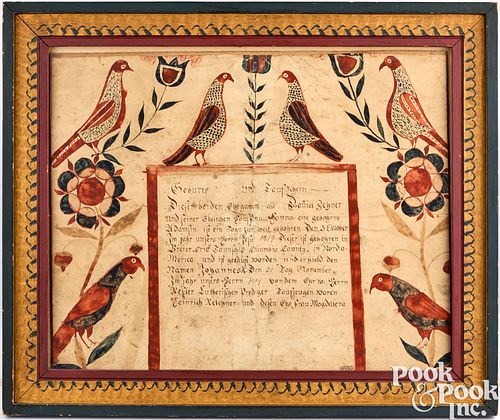 Geburts und Taufschein
Diesen beyden Ehegatten als Daniel Zegner
und seiner Ehelichen Hausfrau Anna eine geborne
Adamsin ist ein Sohn zur welt geboren den 3 October
Im Jahr unsers Herrn Jesu 1819 Dieser ist geboren in
Breier Crie Taunship Columbia Caunty in Norda
Merica und ist getauft worden und erhield den
Namen Johannes Den 21 Dag November
Im Jahr unsers Herrn 1819 von dem Ehr w Herrn
Keßler Lutherischen Prediger Taufzeugen waren
Heinrich Kelchner und desen Ehe frau Magdalena
POOK
& POOK
Inc.